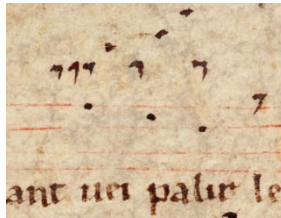 ant uei palir le